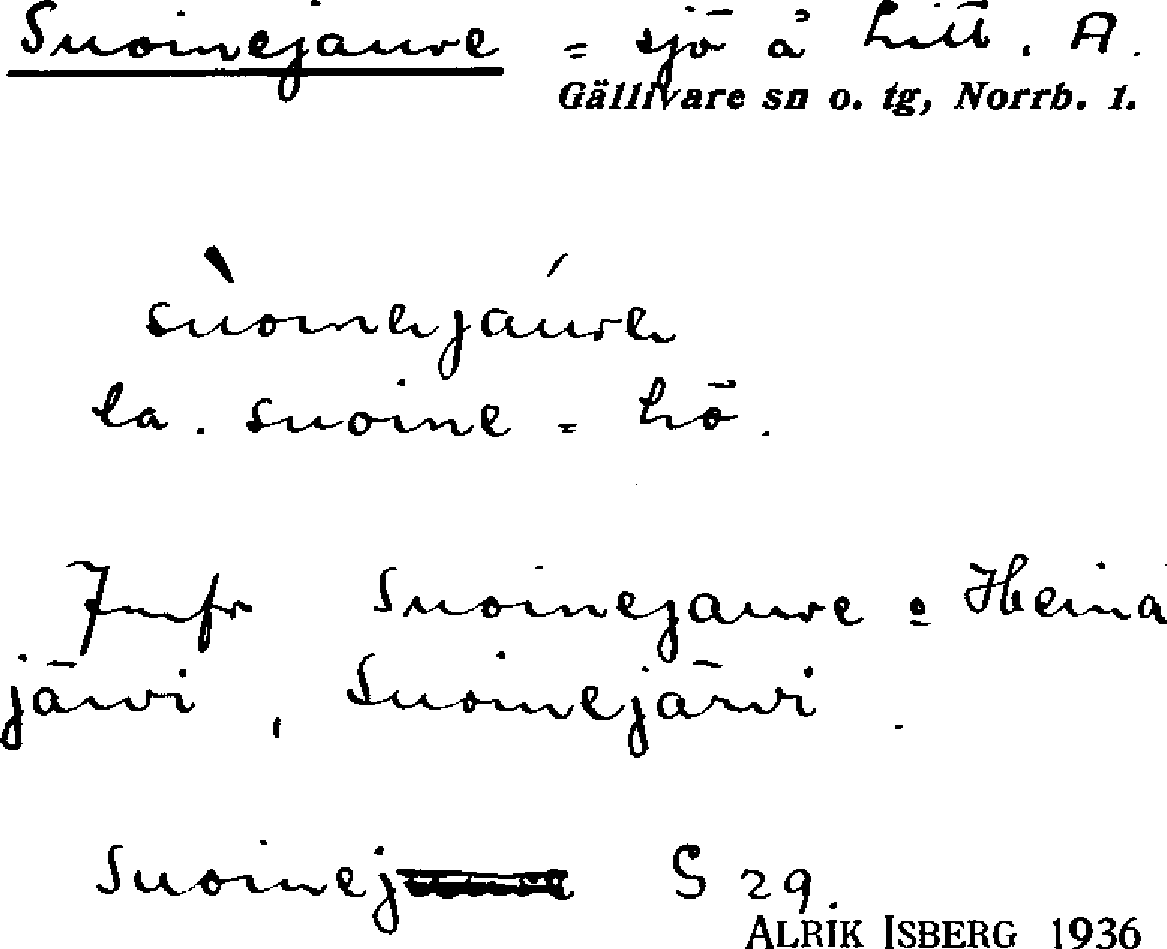 Suoinejaure = sjö å Litt. A.
Gällivare sn o. tg, Norrb. l.
sùoinejáure
la. suoine = hö.
Jmfr Suoinejaure = Heina
järvi, Suoinejärvi.
Suoinej S 29.
ALRIK ISBERG 1936